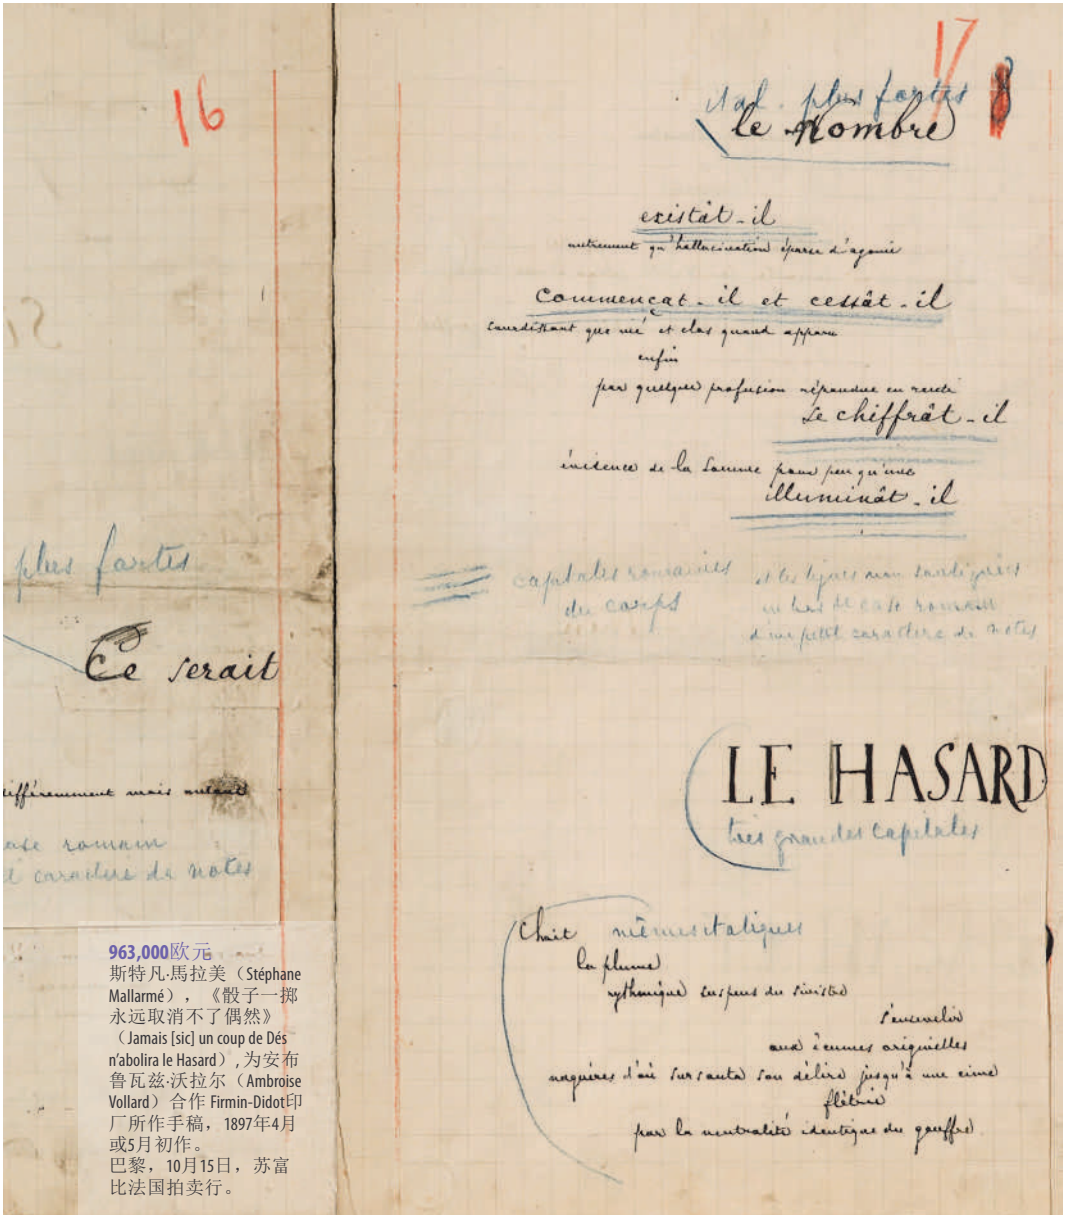 16
plus fortes
Ce serait
différemment mais autant
romain
caractère de notes
17
8
ital. plus fortes
le Nombre
existât-il
autrement qu'hallucination éparse d'agonie
commençât-il et cessât-il
sourdissant que nié et clos quand apparu
enfin
par quelque profusion répandue en rareté
se chiffrât-il
évidence de la somme pour peu qu'une
illuminât-il
capitales romaines
du corps
et les lignes non soulignées
en bas de case romain
d'un petit caractère de notes
LE HASARD
très grandes capitales
Choit mêmes italiques
la plume
rythmique suspens du sinistre
s'ensevelir
aux écumes originelles
naguères d'où sursauta son délire jusqu'à une cime
flétrie
par la neutralité identique du gouffre
963,000欧元
斯特凡·馬拉美（Stéphane
Mallarmé），《骰子一掷
永远取消不了偶然》
（Jamais [sic] un coup de Dés
n'abolira le Hasard）,为安布
鲁瓦兹·沃拉尔（Ambroise
Vollard）合作 Firmin-Didot印
厂所作手稿，1897年4月
或5月初作。
巴黎，10月15日，苏富
比法国拍卖行。